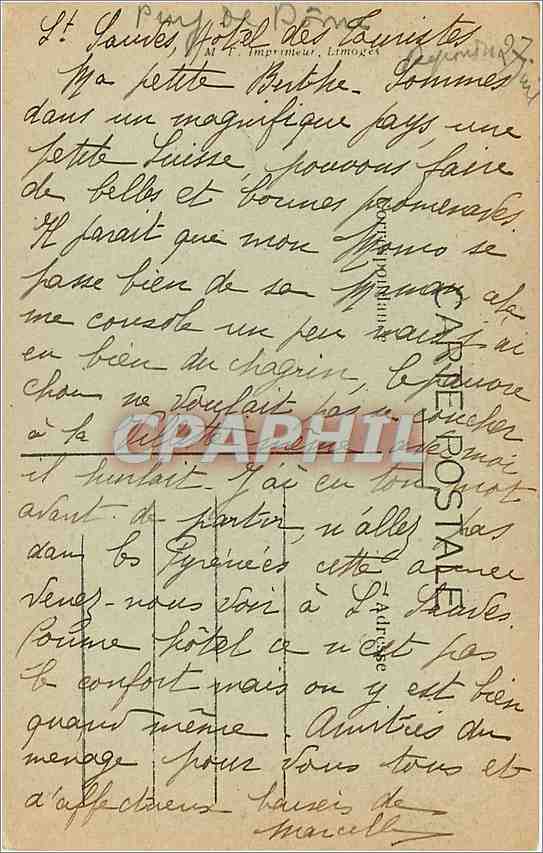 Puy de Dôme
St Sauves, Hôtel des Touristes
M. T. Imprimeur, Limoges
27
Ma petite Berthe. Sommes
dans un magnifique pays, une
petite Suisse, pouvons faire
de belles et bonnes promenades.
Il parait que mon Momo se
passe bien de sa Maman, cela
me console un peu mais j'ai
eu bien du chagrin, le pauvre
chou ne voulait pas se coucher
à la même avec moi
il hurlait. J'ai eu ton mot
avant de partir, n'allez pas
dans les Pyrénées cette année
venez-nous voir à St Sauves.
Comme hôtel ce n'est pas
le confort mais on y est bien
quand même. Amitiés du
menage pour vous tous et
d'affectueux baisers de
Marcelle
CARTE POSTALE
Correspondance
Adresse
CPAPHIL